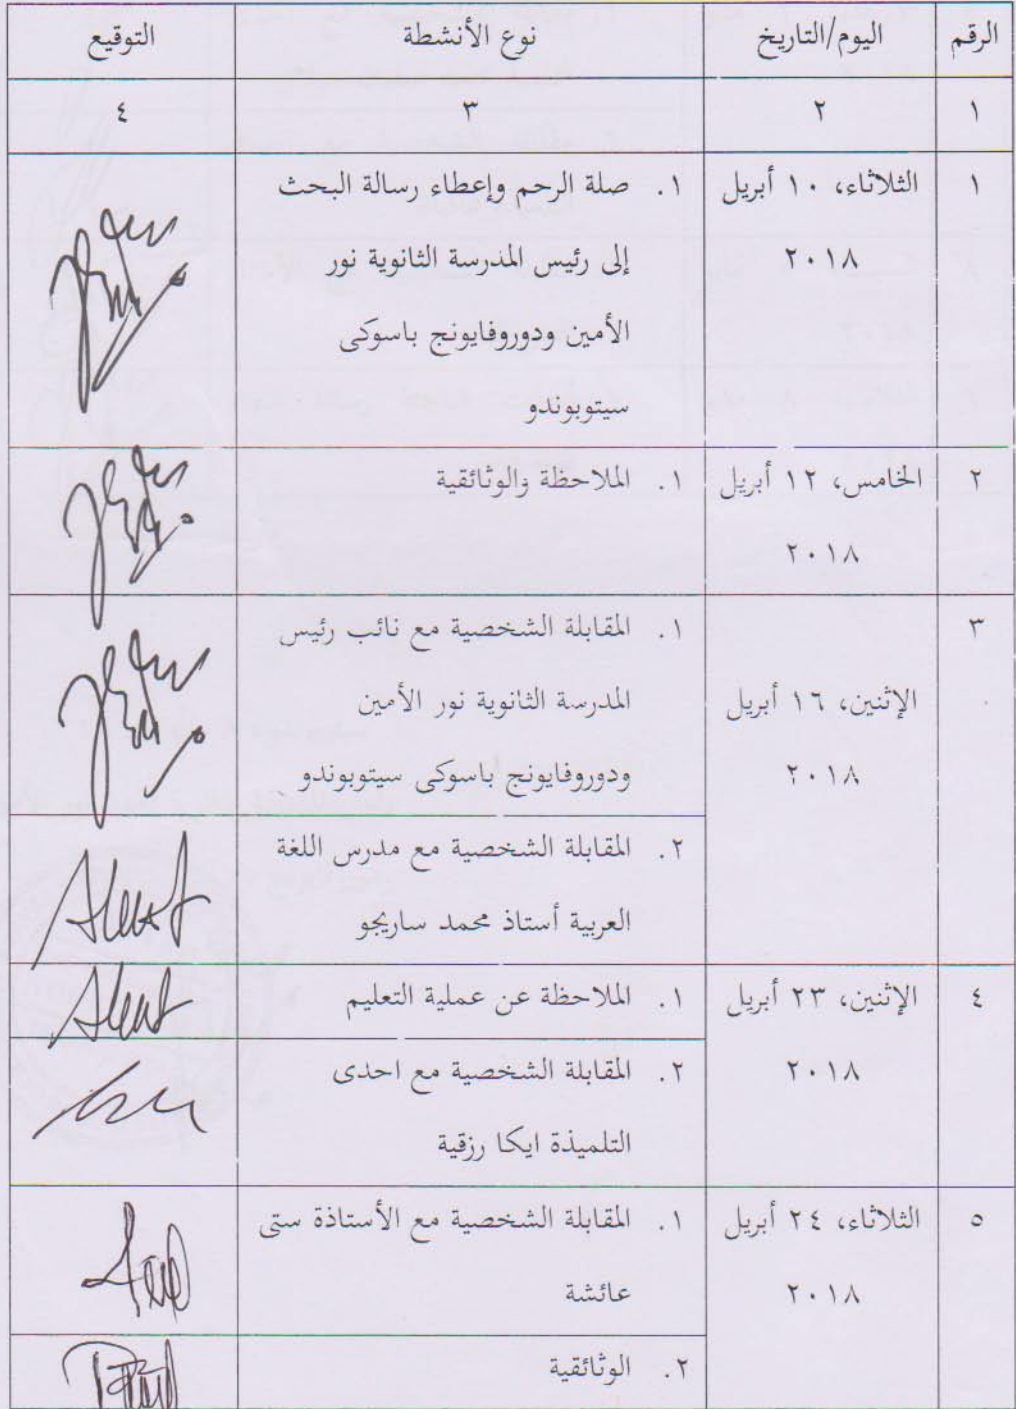 الرقم اليوم/التاريخ نوع الأنشطة التوقيع
١ ٢ ٣ ٤
١ الثلاثاء، ١٠ أبريل ١. صلة الرحم وإعطاء رسالة البحث
٢٠١٨ إلى رئيس المدرسة الثانوية نور
الأمين ودوروفايونج باسوكى
سيتوبوندو
٢ الخامس، ١٢ أبريل ١. الملاحظة والوثائقية
٢٠١٨
٣ ١. المقابلة الشخصية مع نائب رئيس
الإثنين، ١٦ أبريل المدرسة الثانوية نور الأمين
٢٠١٨ ودوروفايونج باسوكى سيتوبوندو
٢. المقابلة الشخصية مع مدرس اللغة
العربية أستاذ محمد ساريجو
٤ الإثنين، ٢٣ أبريل ١. الملاحظة عن عملية التعليم
٢٠١٨ ٢. المقابلة الشخصية مع احدى
التلميذة ايكا رزقية
٥ الثلاثاء، ٢٤ أبريل ١. المقابلة الشخصية مع الأستاذة ستى
٢٠١٨ عائشة
٢. الوثائقية